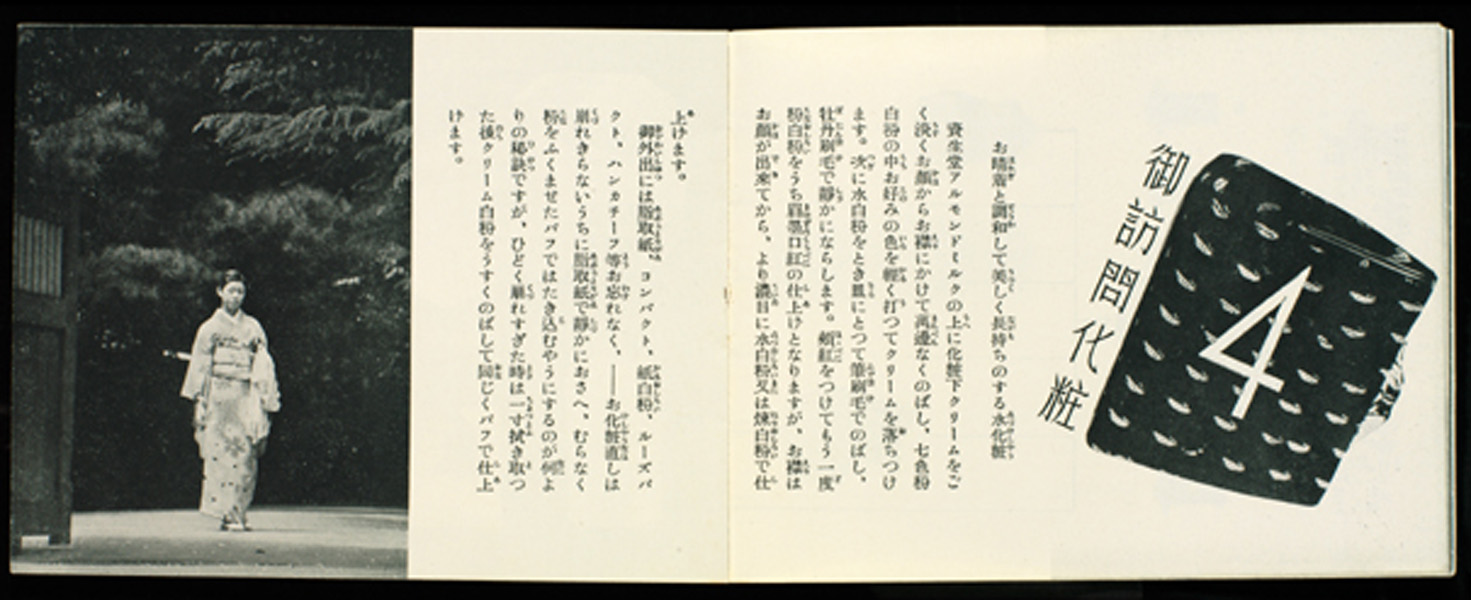 4
御訪問化粧
お晴着と調和して美しく長持ちのする水化粧
資生堂アルモンドミルクの上に化粧下クリームをご
く淡くお顔からお襟にかけて万遍なくのばし、七色粉
白粉の中お好みの色を軽く打つてクリームを落ちつけ
ます。次に水白粉をとき皿にとつて筆刷毛でのばし、
牡丹刷毛で静かにならします。頬紅をつけてもう一度
粉白粉をうち眉墨口紅の仕上けとなりますが、お襟は
お顔が出来てから、より濃目に水白粉又は煉白粉で仕
上けます。
御外出には脂取紙、コンパクト、紙白粉、ルーズパ
クト、ハンカチーフ等お忘れなく、――お化粧直しは
崩れきらないうちに脂取紙で静かにおさへ、むらなく
粉をふくませたパフではたき込むやうにするのが何よ
りの秘訣ですが、ひどく崩れすぎた時は一寸拭き取つ
た後クリーム白粉をうすくのばして同じくパフで仕上
けます。